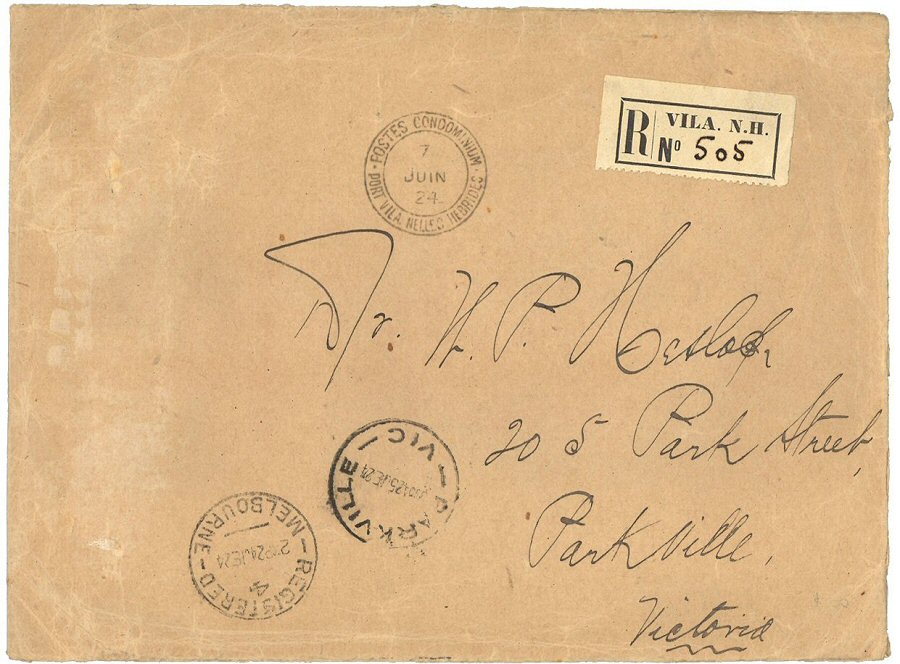 POSTES CONDOMINIUM
7
JUIN
24
PORT VILA. NELLES HEBRIDES
R
VILA. N.H.
Nº 505
Dr. W. P. Heslop,
205 Park Street,
Parkville,
Victoria
PARKVILLE — VIC —
25 JE 24
REGISTERED — MELBOURNE —
24 JE 24
4